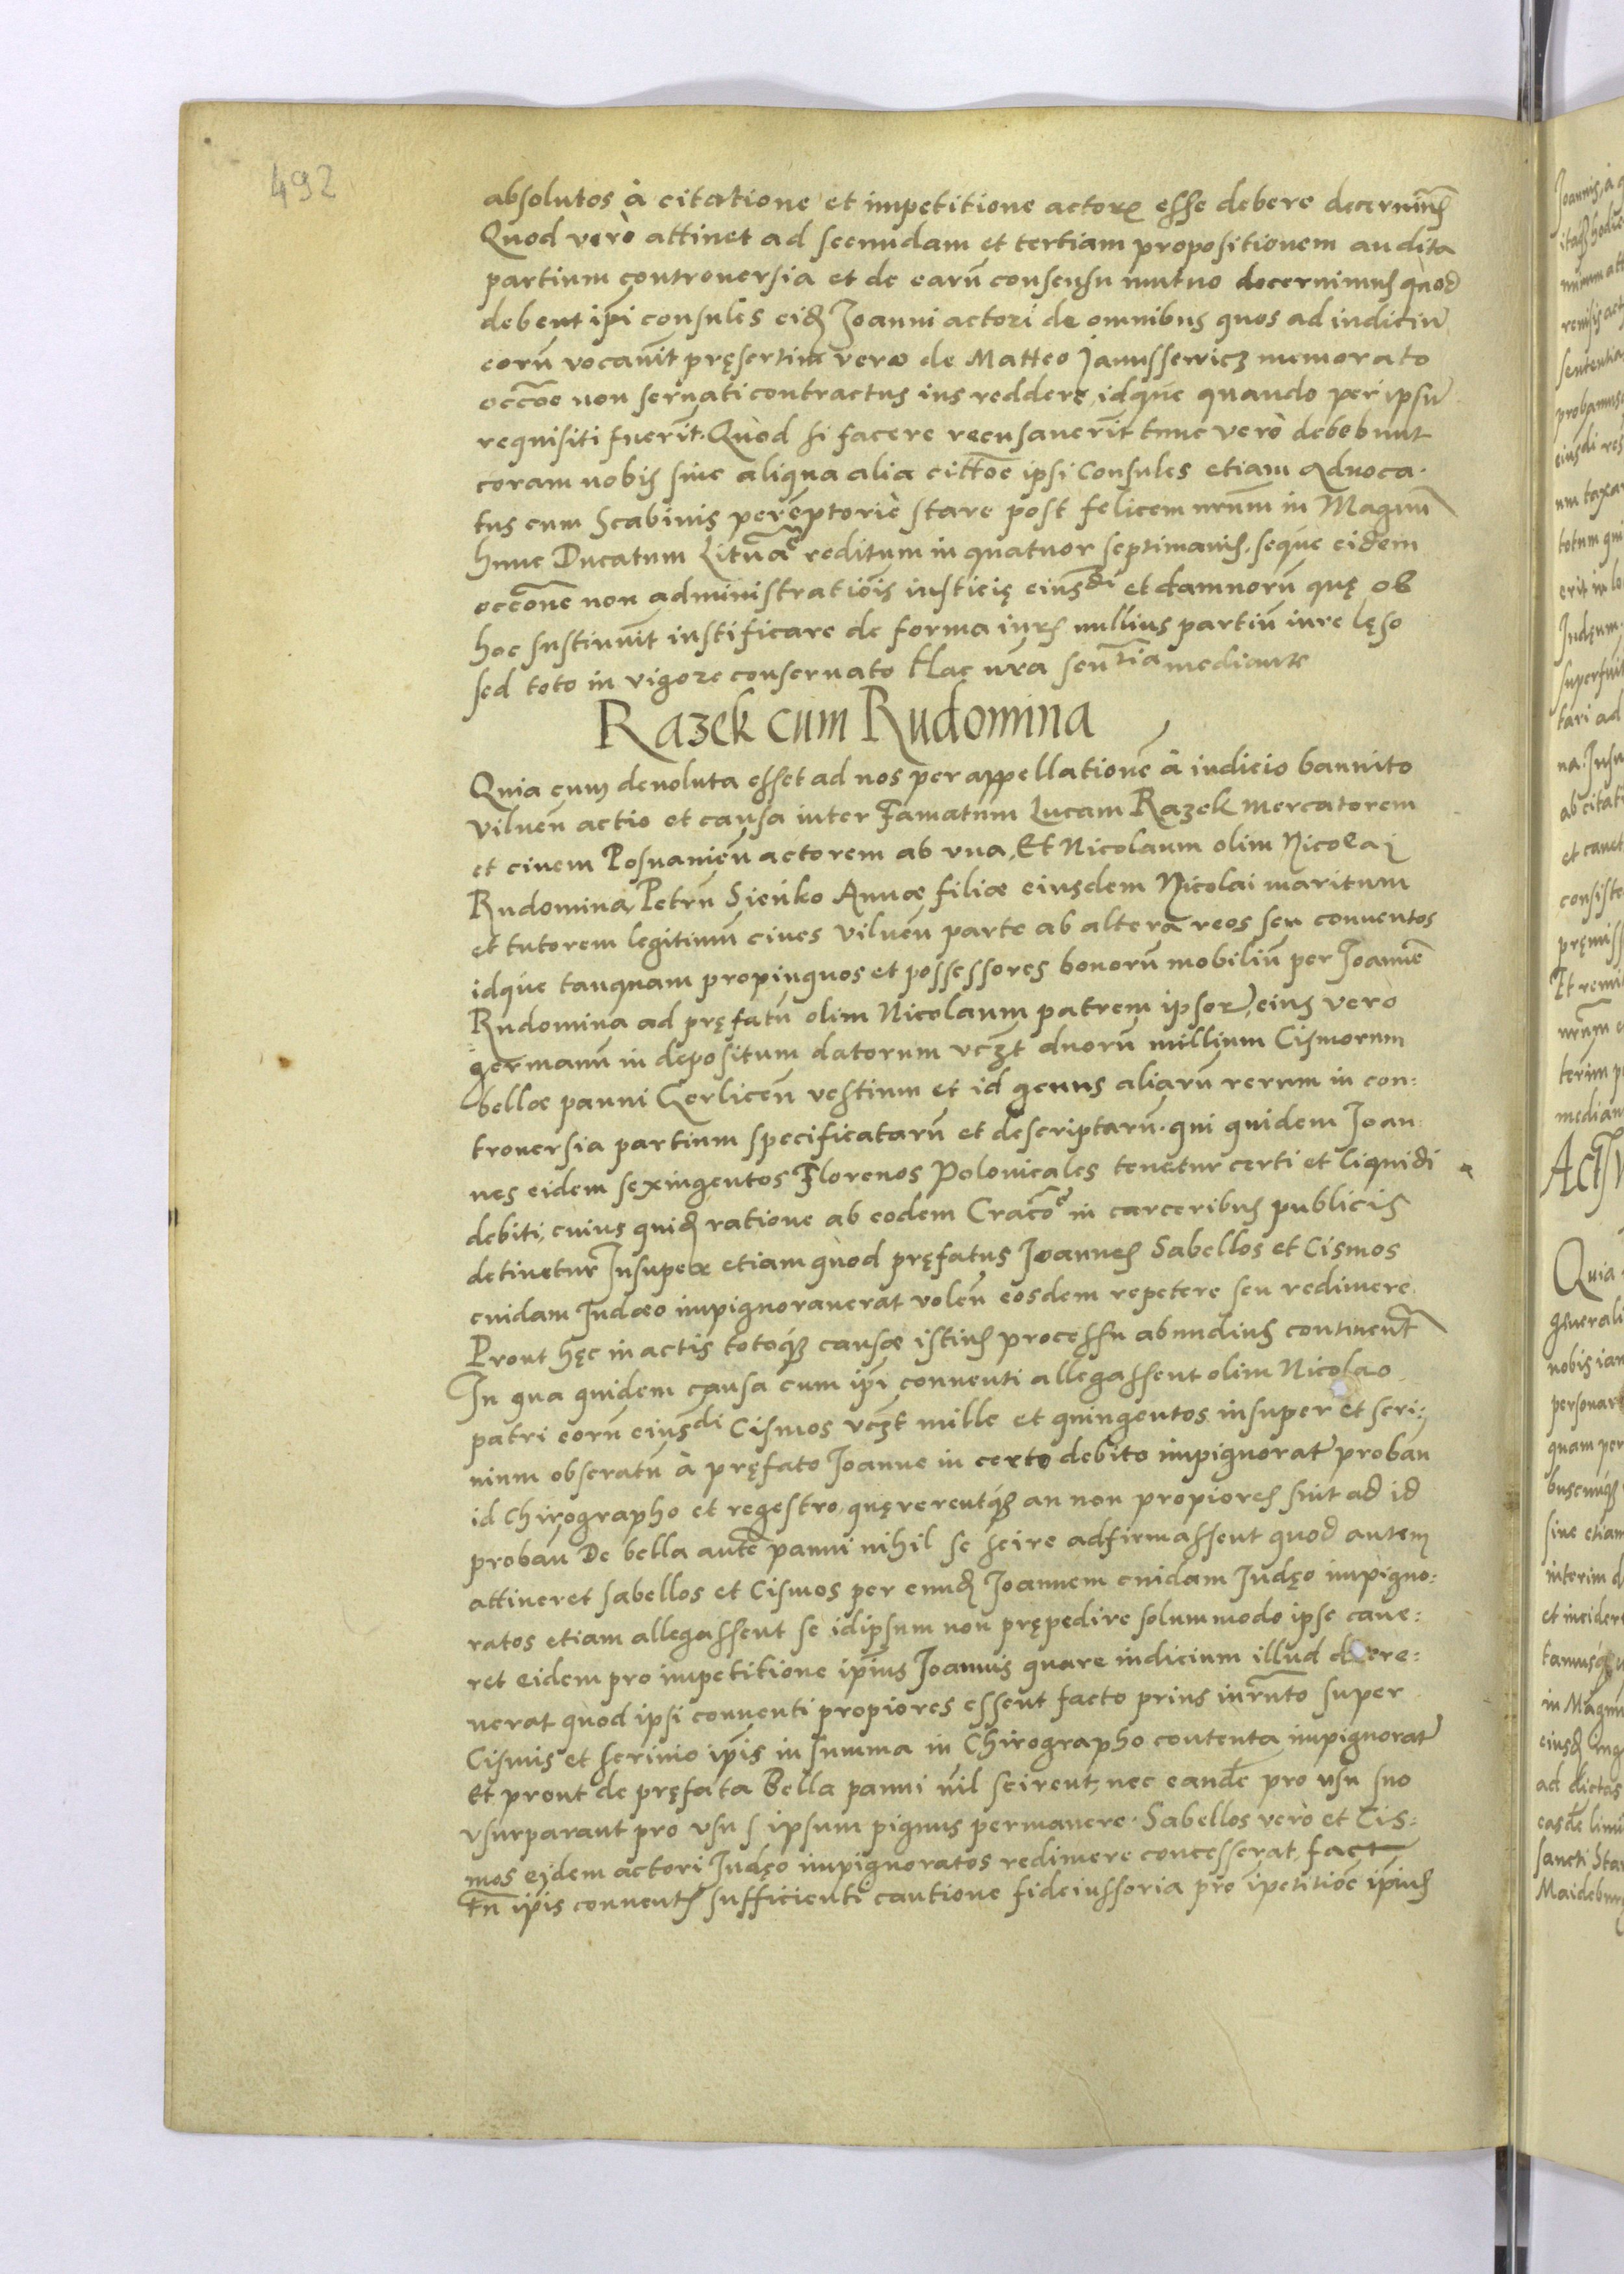 492
absolutos à citatione et impetitione actorꝭ esse debere decernimꝰ
Quod verò attinet ad secundam et tertiam propositionem audita
partium controuersia et de earũ consensu mutuo decernimus quod
debent ip̃i consules eidẽ Joanni actori de omnibus quos ad iudiciũ
eorũ vocauit pręsertim vero de Matteo Janussewicz memorato
occõe non seruati contractus ius reddere, idque quando per ipsũ
requisiti fuerĩt. Quod si facere recusauerĩt tunc verò debebunt
coram nobis sine aliqua alia cittõe ipsi Consules etiam Aduoca-
tus cum Scabinis peremptoriè stare post felicem nrũm in Magnũ
hunc Ducatum Lituãe reditum in quatuor septimanis, seque eidem
occõne non administratiõis iusticię eiusdi et damnorũ quę ob
hoc sustinuit iustificare de forma iurꝭ nullius partiũ iure lęso
sed toto in vigore conseruato Hac nr̃a sentia mediante
Razek cum Rudomina
Quia cum deuoluta esset ad nos per appellationẽ à iudicio bannito
Vilneñ actio et causa inter Famatum Lucam Razek mercatorem
et ciuem Posnanieñ actorem ab vna, Et Nicolaum olim Nicolai
Rudomina, Petrũ Sieńko Annæ filiæ eiusdem Nicolai maritum
et tutorem legitimũ ciues Vilneñ parte ab altera reos seu conuentos
idque tanquam propinquos et possessores bonorũ mobiliũ per Joannẽ
Rudomina ad pręfatũ olim Nicolaum patrem ipsoꝝ, eius vero
germanũ in depositum datorum vczt duorũ millium Cismorum
bellæ panni Gerliceñ vestium et id genus aliarũ rerum in con:
trouersia partium specificatarũ et descriptarũ. qui quidem Joan-
nes eidem sexingentos Florenos Polonicales tenetur certi et liquidi
debiti, cuius quidẽ ratione ab eodem Cracõe in carceribus publicis
detinetur Insuper etiam quod pręfatus Joannes Sabellos et Cismos
cuidam Iudæo impignorauerat voleñ eosdem repetere seu redimere
Prout hęc in actis totoque causæ istius processu abundius continent᷑
In qua quidem causa cum ip̃i conuenti allegassent olim Nicolao
patri eorũ eiusdi Cismos vczt mille et quingentos insuper et scri:
nium obseratũ à pręfato Joanne in certo debito impignorat᷑ probañ
id Chirographo et regestro quęrerentque an non propiores sint ad id
probañ De bella autẽ panni nihil se scire adfirmassent quod autem
attineret sabellos et Cismos per eundẽ Joannem cuidam Iudęo impigno:
ratos etiam allegassent se idipsum non prępedire solummodo ipse caue:
ret eidem pro impetitione ip̃ius Joannis quare iudicium illud decre:
uerat quod ipsi conuenti propiores essent facto prius iurm̃to super
Cismis et scrinio ip̃is in summa in Chirographo contenta impignorat᷑
Et prout de pręfata Bella panni nil scirent, nec eandẽ pro vsu suo
vsurparant pro vsu ipsum pignus permanere. Sabellos verò et Cis:
mos eidem actori Iudęo impignoratos redimere concesserat, fact
tñ ip̃is conuentꝭ sufficienti cautione fideiussoria pro ipetitiõe ip̃ius